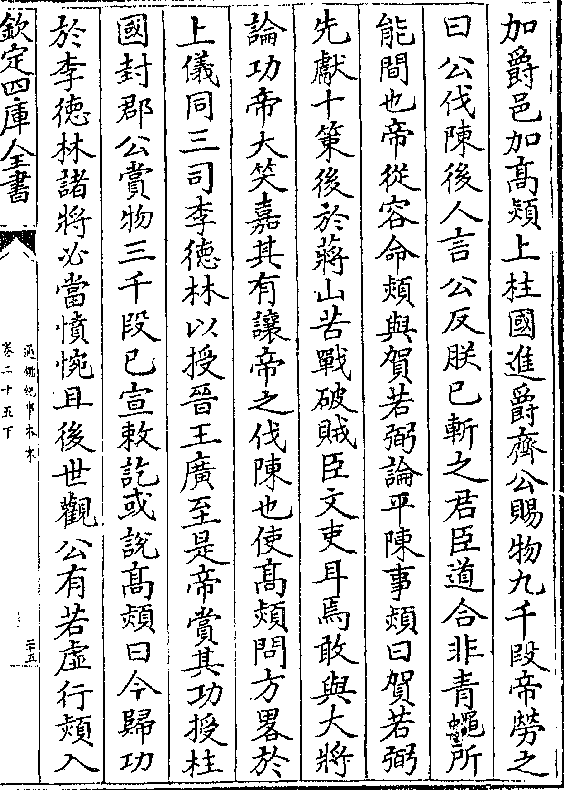 加爵邑加高熲上柱國進爵齊公賜物九千段帝勞之
曰公伐陳後人言公反朕已斬之君臣道合非青蠅所
能間也帝從容命熲與賀若弼論平陳事熲曰賀若弼
先獻十策後於蔣山苦戰破賊臣文吏耳焉敢與大將
論功帝大笑嘉其有讓帝之伐陳也使高熲問方畧於
上儀同三司李徳林以授晉王廣至是帝賞其功授柱
國封郡公賞物三千段已宣敕訖或說高熲曰今歸功
於李徳林諸將必當憤惋且後世觀公有若虛行熲入
欽定四庫全書
通鑑紀事本末
卷二十五下
二十五